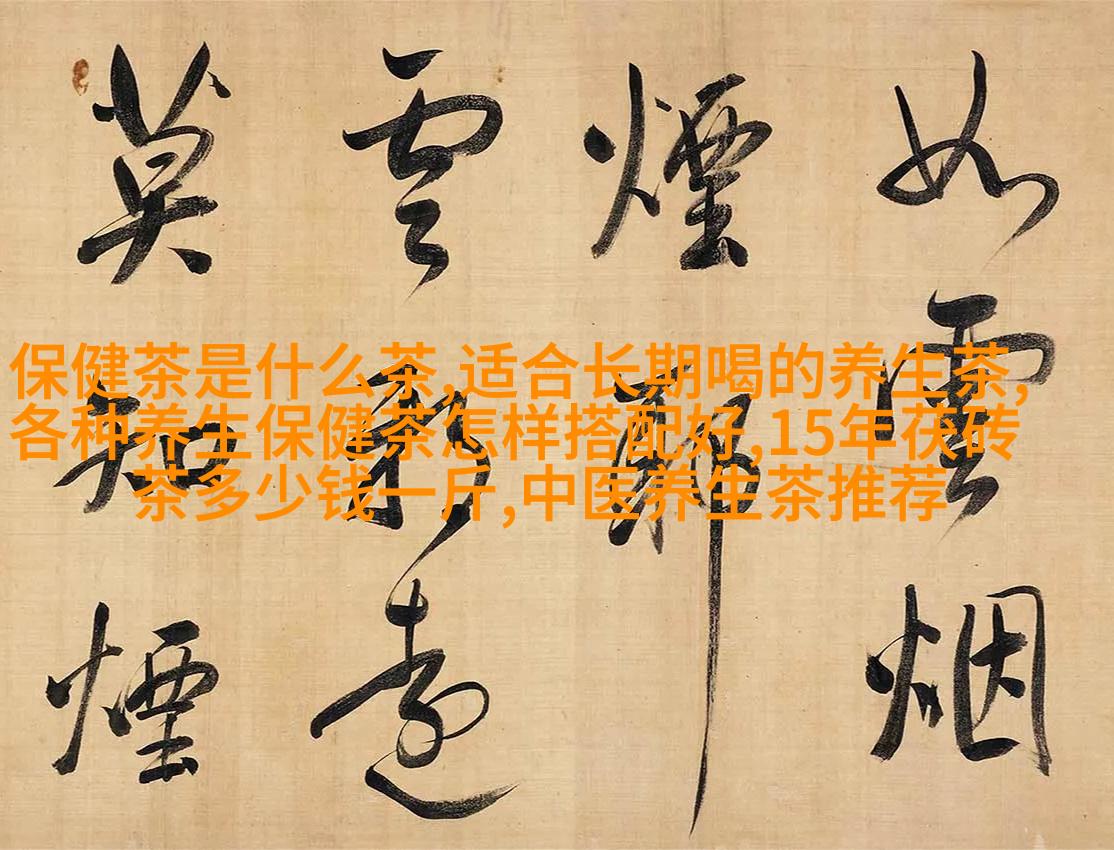 保健茶是什么茶,适合长期喝的养生茶,
各种养生保健茶怎样搭配好,15年茯砖
茶多少钱一斤,中医养生茶推荐
如雲烟
煙
雲遠
莫知煙